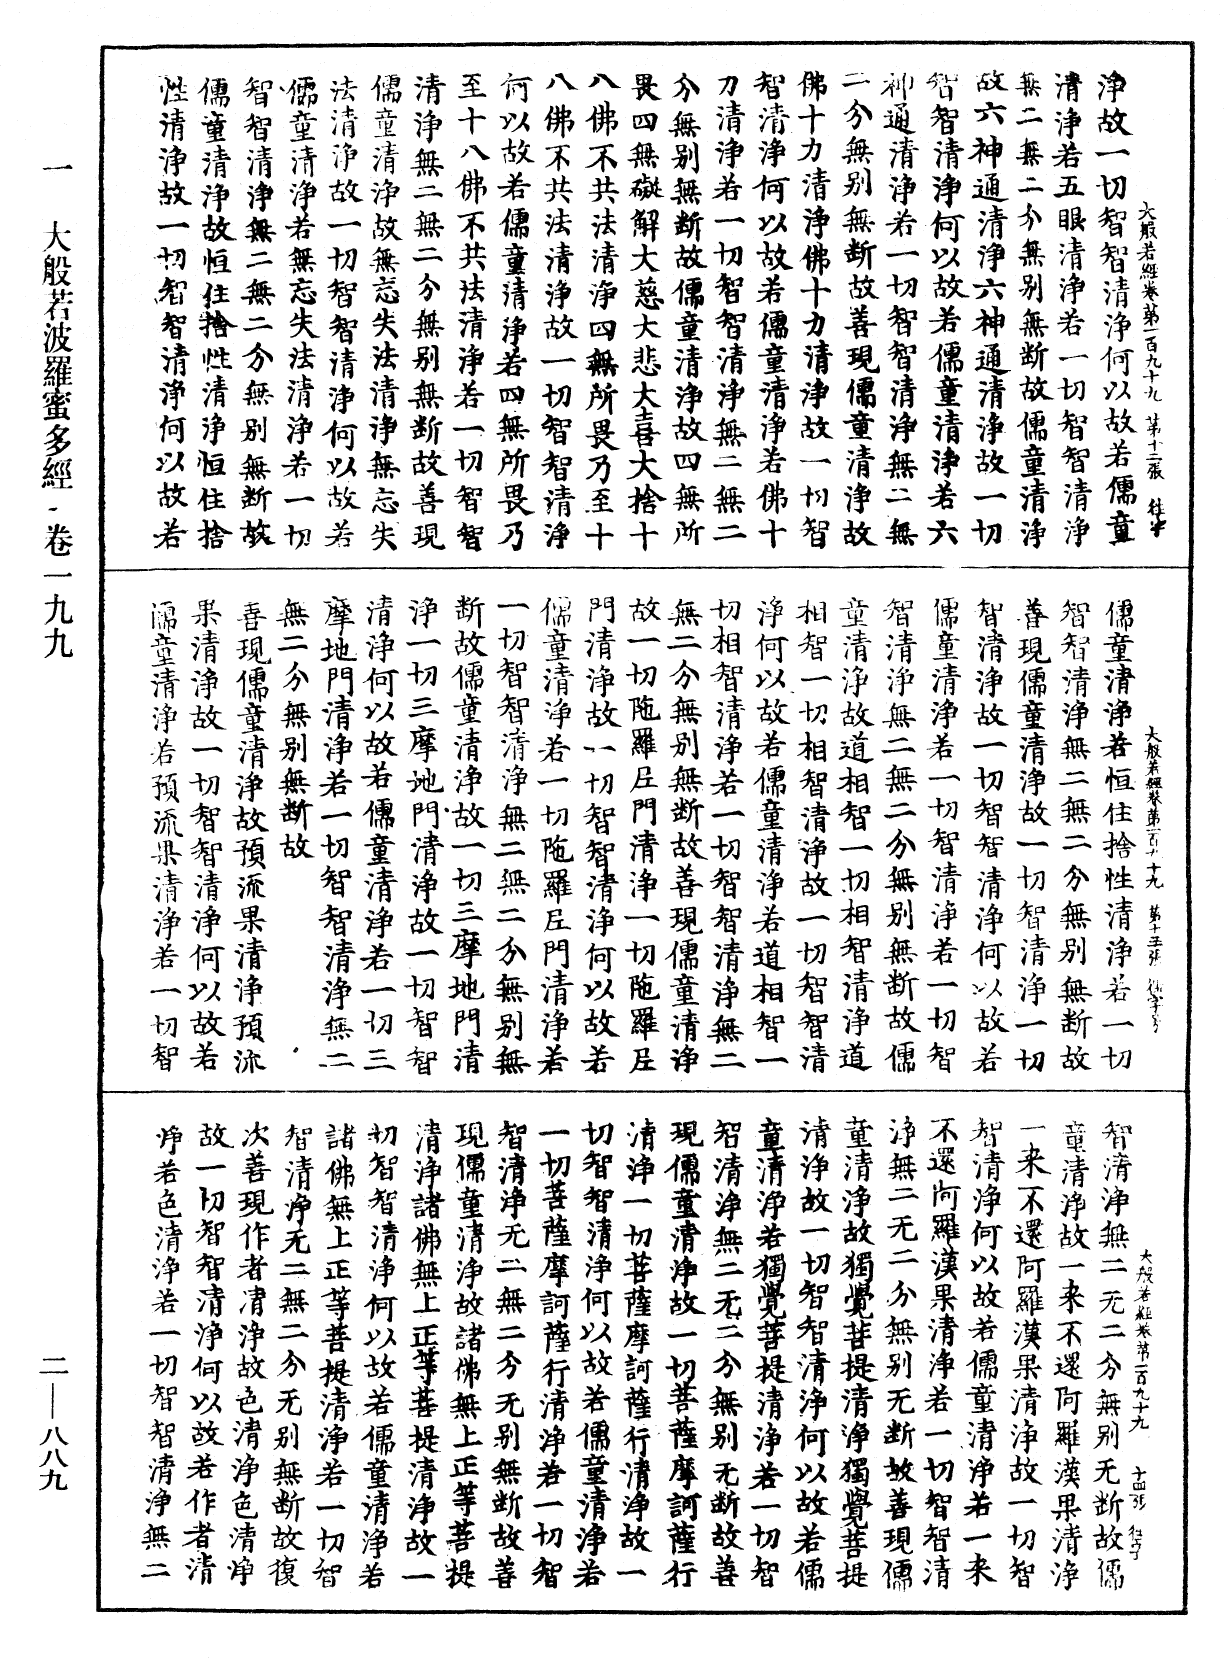 大般若經卷第一百九十九 第十二張
淨故一切智智清淨何以故若儒童
清淨若五眼清淨若一切智智清淨
無二無二分無別無斷故儒童清淨
故六神通清淨六神通清淨故一切
智智清淨何以故若儒童清淨若六
神通清淨若一切智智清淨無二無
二分無別無斷故善現儒童清淨故
佛十力清淨佛十力清淨故一切智
智清淨何以故若儒童清淨若佛十
力清淨若一切智智清淨無二無二
分無別無斷故儒童清淨故四無所
畏四無礙解大慈大悲大喜大捨十
八佛不共法清淨四無所畏乃至十
八佛不共法清淨故一切智智清淨
何以故若儒童清淨若四無所畏乃
至十八佛不共法清淨若一切智智
清淨無二無二分無別無斷故善現
儒童清淨故無忘失法清淨無忘失
法清淨故一切智智清淨何以故若
儒童清淨若無忘失法清淨若一切
智智清淨無二無二分無別無斷故
儒童清淨故恒住捨性清淨恒住捨
性清淨故一切智智清淨何以故若
大般若經卷第一百九十九 第十三張
儒童清淨若恒住捨性清淨若一切
智智清淨無二無二分無別無斷故
善現儒童清淨故一切智清淨一切
智清淨故一切智智清淨何以故若
儒童清淨若一切智清淨若一切智
智清淨無二無二分無別無斷故儒
童清淨故道相智一切相智清淨道
相智一切相智清淨故一切智智清
淨何以故若儒童清淨若道相智一
切相智清淨若一切智智清淨無二
無二分無別無斷故善現儒童清淨
故一切陁羅尼門清淨一切陁羅尼
門清淨故一切智智清淨何以故若
儒童清淨若一切陁羅尼門清淨若
一切智智清淨無二無二分無別無
斷故儒童清淨故一切三摩地門清
淨一切三摩地門清淨故一切智智
清淨何以故若儒童清淨若一切三
摩地門清淨若一切智智清淨無二
無二分無別無斷故
善現儒童清淨故預流果清淨預流
果清淨故一切智智清淨何以故若
儒童清淨若預流果清淨若一切智
大般若經卷第一百九十九 十四張
智清淨無二无二分無別无斷故儒
童清淨故一来不還阿羅漢果清淨
一来不還阿羅漢果清淨故一切智
智清淨何以故若儒童清淨若一来
不還阿羅漢果清淨若一切智智清
淨無二无二分無別无斷故善現儒
童清淨故獨覺菩提清淨獨覺菩提
清淨故一切智智清淨何以故若儒
童清淨若獨覺菩提清淨若一切智
智清淨無二无二分無別无斷故善
現儒童清淨故一切菩薩摩訶薩行
清淨一切菩薩摩訶薩行清淨故一
切智智清淨何以故若儒童清淨若
一切菩薩摩訶薩行清淨若一切智
智清淨无二無二分无別無斷故善
現儒童清淨故諸佛無上正等菩提
清淨諸佛無上正等菩提清淨故一
切智智清淨何以故若儒童清淨若
諸佛無上正等菩提清淨若一切智
智清淨无二無二分无別無斷故復
次善現作者清淨故色清淨色清淨
故一切智智清淨何以故若作者清
淨若色清淨若一切智智清淨無二
一 大般若波羅蜜多經·卷一九九
二—八八九